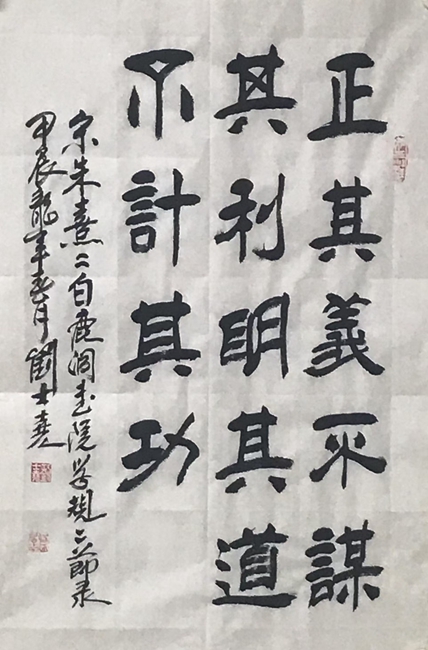 正其義不謀
其利明其道
不計其功
宋朱熹《白鹿洞書院学规》節录
甲辰龍年春月劉士堯